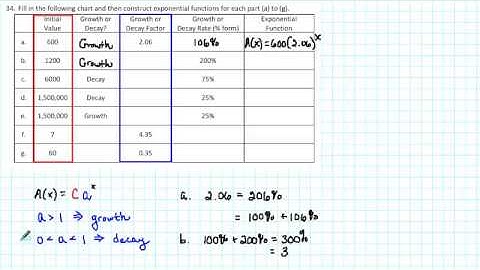 34. Fill in the following chart and then construct exponential functions for each part (a) to (g).
Initial Value Growth or Decay? Growth or Decay Factor Growth or Decay Rate (% form) Exponential Function
a. 600 Growth 2.06 106% A(x)=600(2.06)^x
b. 1200 Growth 200%
c. 6000 Decay 75%
d. 1,500,000 Decay 25%
e. 1,500,000 Growth 25%
f. 7 4.35
g. 60 0.35
A(x) = C a^x
a > 1 ⇒ growth
0 < a < 1 ⇒ decay
a. 2.06 = 206%
= 100% + 106%
b. 100% + 200% = 300%
= 3